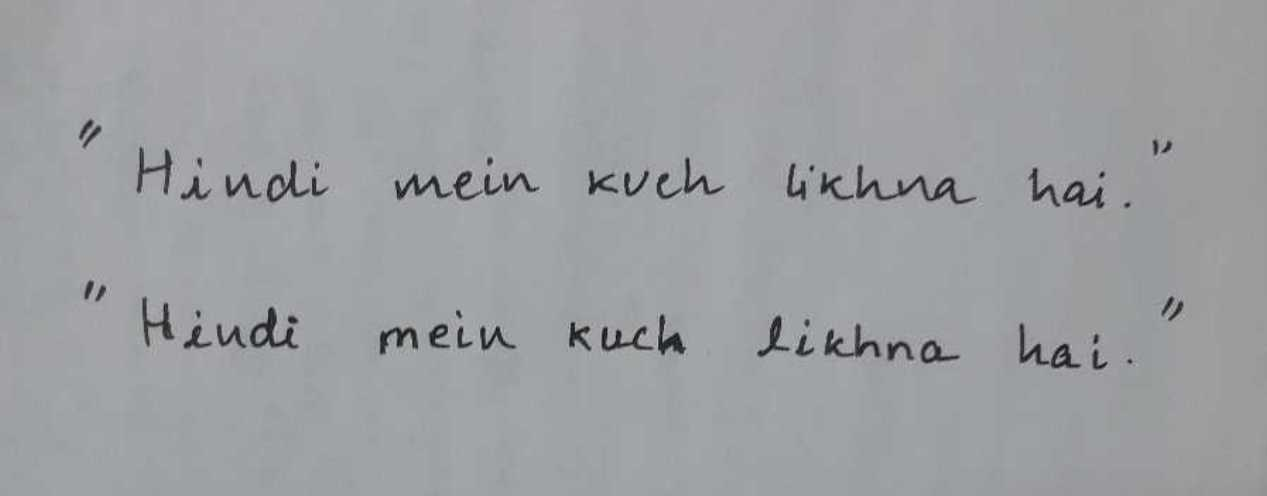 "Hindi mein kuch likhna hai."
"Hindi mein kuch likhna hai."